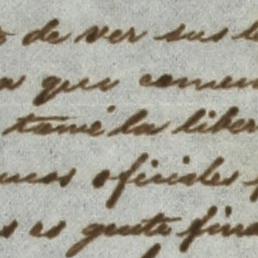 de ver sus l
a que comen
tamé la liber
unos oficiales
s es gente fina